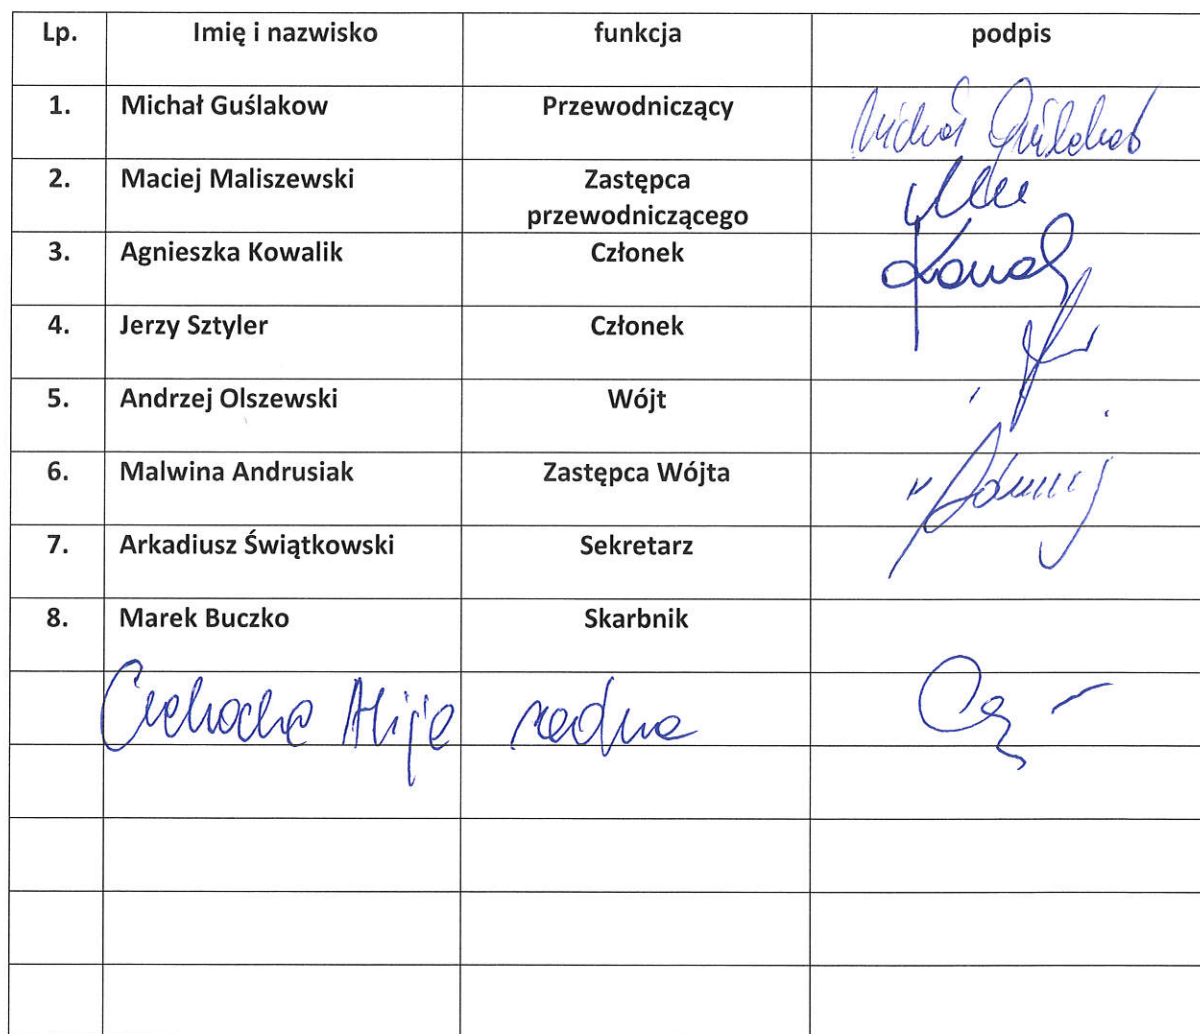 Lp. Imię i nazwisko funkcja podpis
1. Michał Guślakow Przewodniczący Michał
2. Maciej Maliszewski Zastępca
przewodniczącego
3. Agnieszka Kowalik Członek
4. Jerzy Sztyler Członek
5. Andrzej Olszewski Wójt
6. Malwina Andrusiak Zastępca Wójta
7. Arkadiusz Świątkowski Sekretarz
8. Marek Buczko Skarbnik
Alicja radna